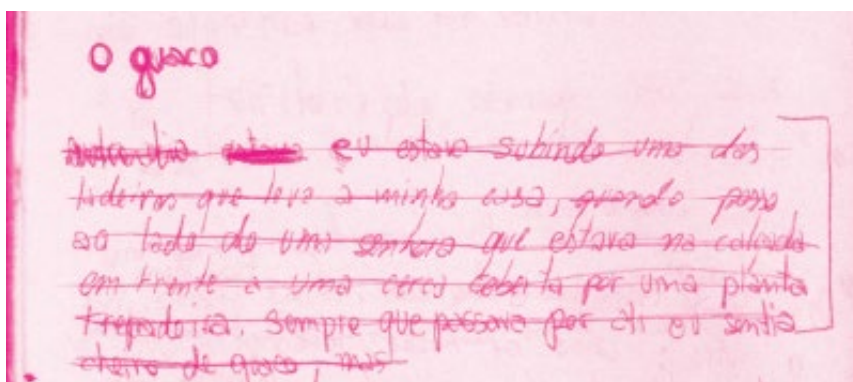 O guaco
eu estava subindo uma das
ladeiras que leva a minha casa, quando passo
ao lado de uma senhora que estava na calçada
em frente a uma cerca coberta por uma planta
trepadeira. Sempre que passava por ali eu sentia
cheiro de guaco, mas